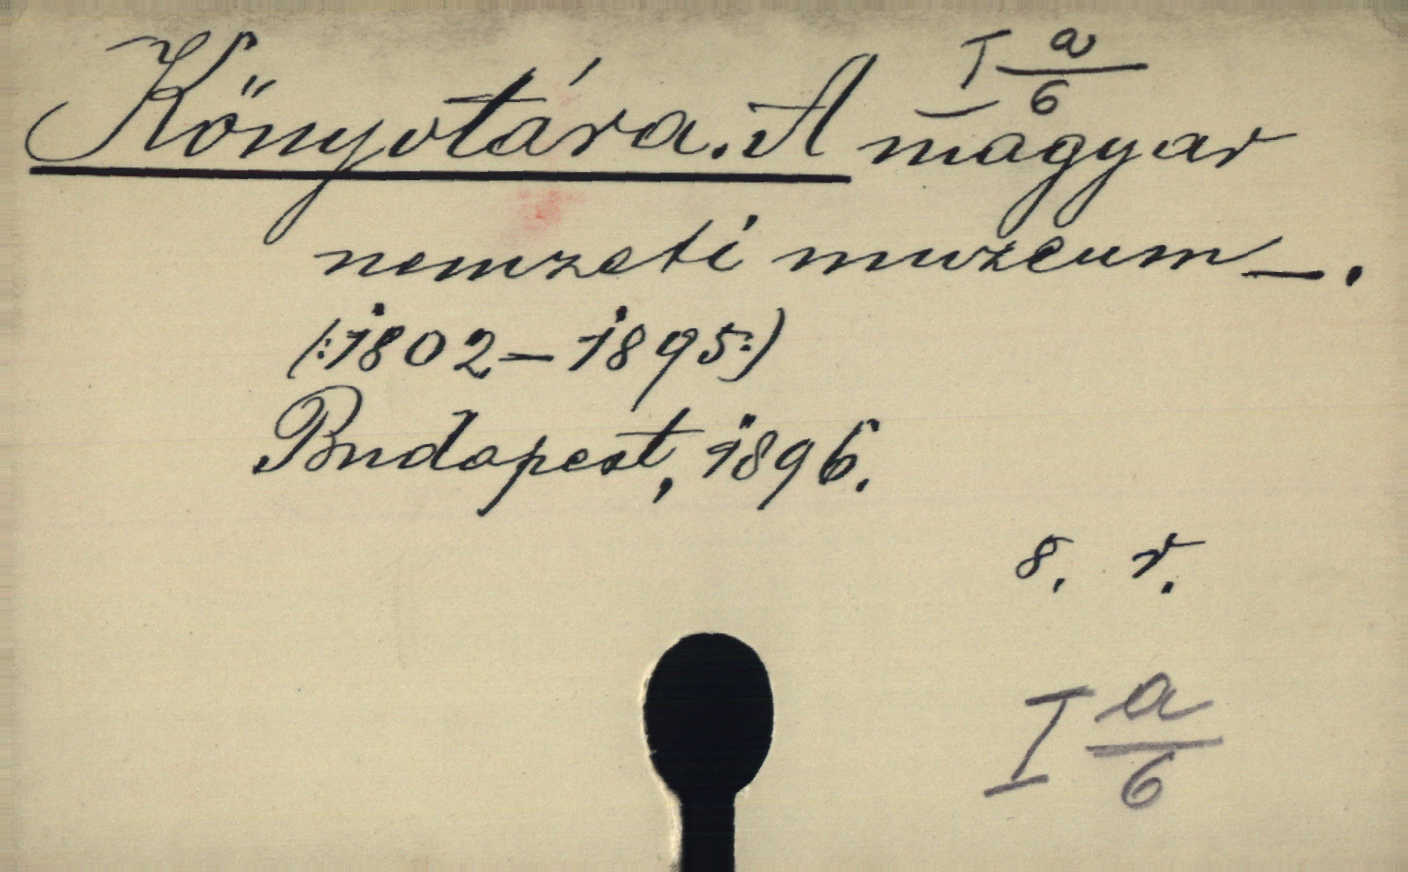 I a/6
Könyvtára. A magyar
nemzeti muzeum —.
(:1802–1895:)
Budapest, 1896.
8. r.
I a/6